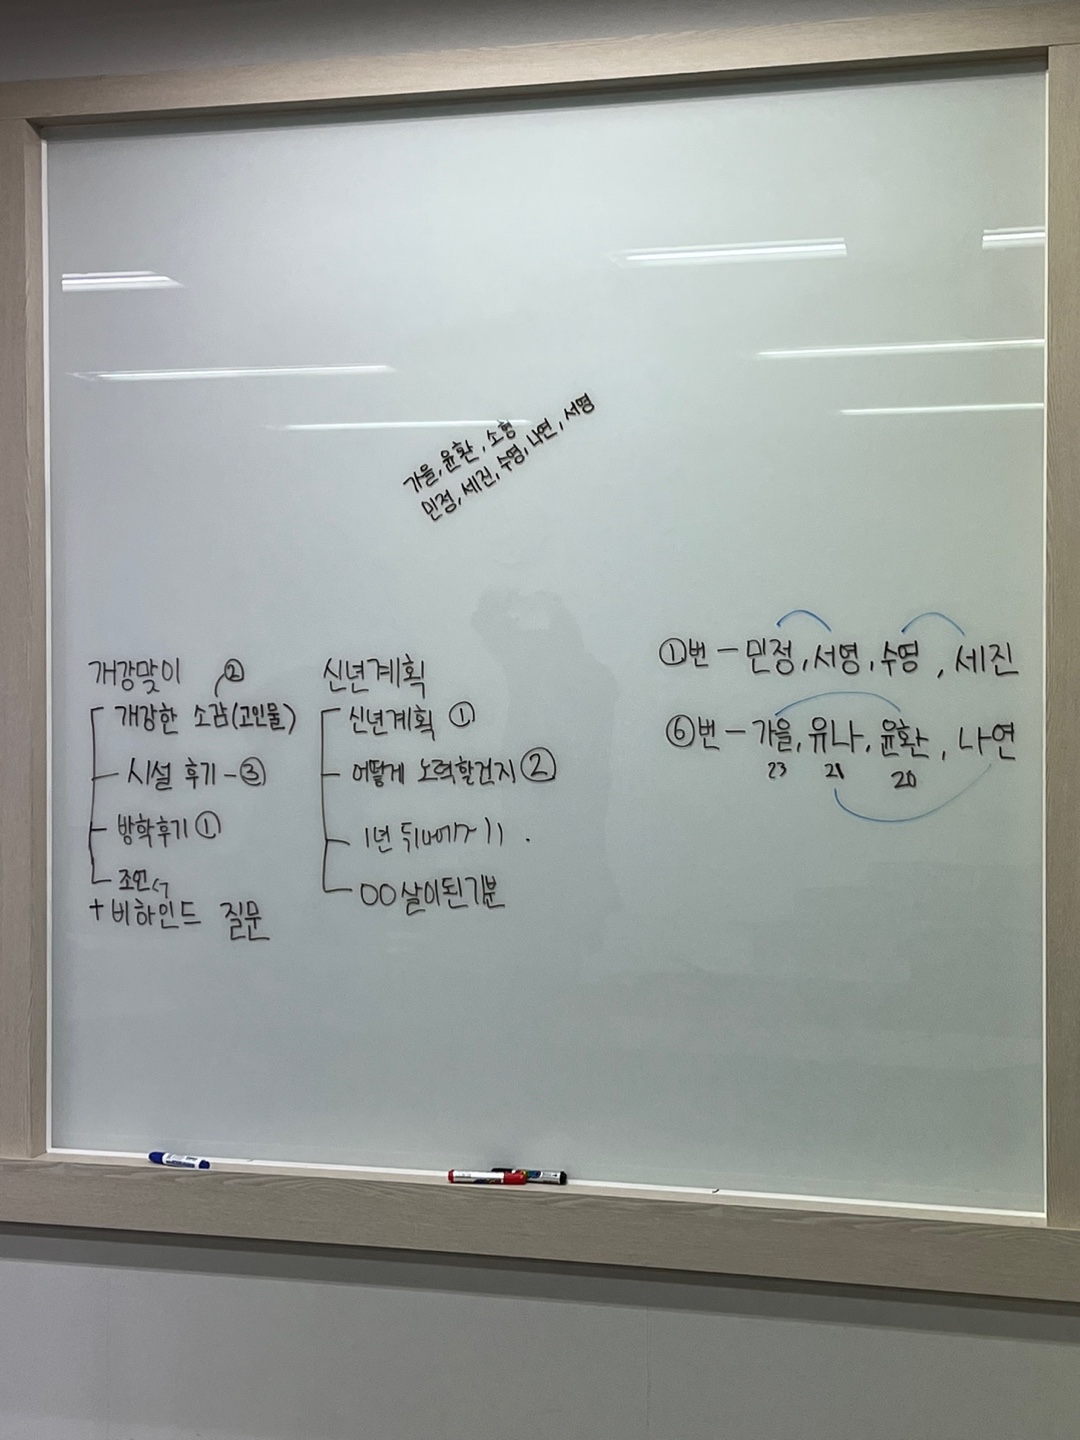 가을, 윤환, 소형
민정, 세진, 수영, 나연, 서영
개강맞이
②
개강한 소감(고인물)
시설 후기 - ③
방학후기 ①
+ 비하인드 질문
신년계획
신년계획 ①
어떻게 노력할건지 ②
1년 뒤
OO살이된기분
①번 - 민정, 서영, 수영, 세진
⑥번 - 가을, 유나, 윤환, 나연
23 21 20